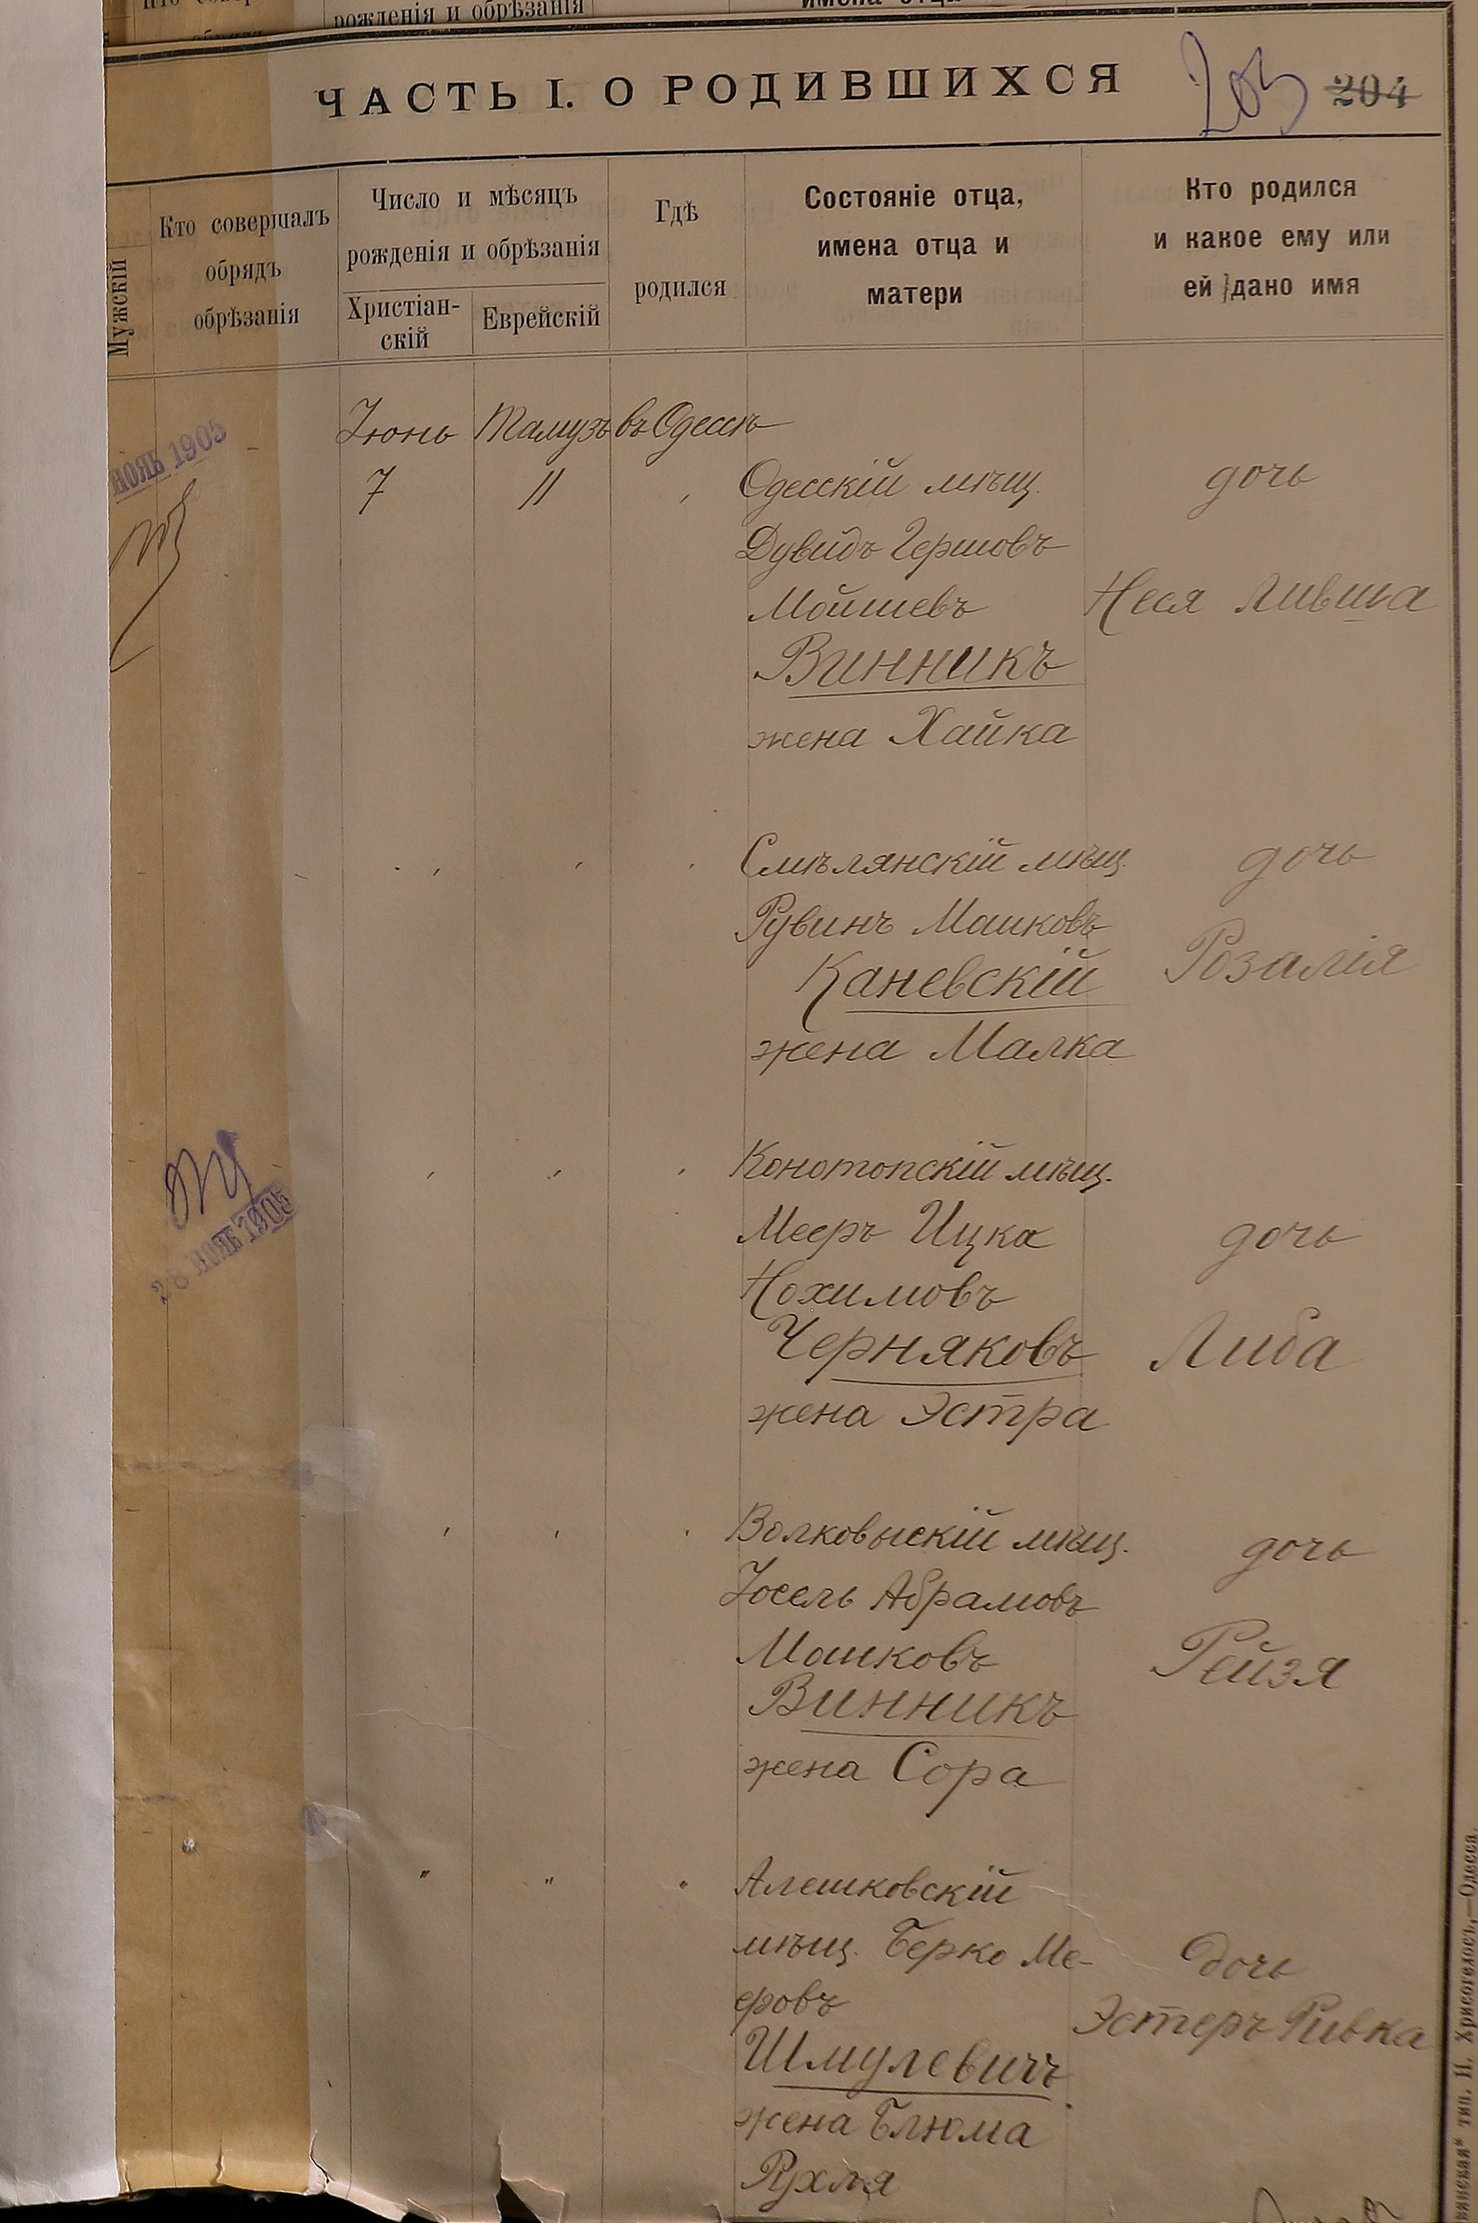 рожденія и обрѣзанія
имена отца
ЧАСТЬ I. О РОДИВШИХСЯ
203 204
Мужскій
Кто совершалъ
обрядъ
обрѣзанія
Число и мѣсяцъ
рожденія и обрѣзанія
Христіан-
скій
Еврейскій
Гдѣ
родился
Состояніе отца,
имена отца и
матери
Кто родился
и какое ему или
ей дано имя
Іюнь Тамузъ въ Одессѣ
НОЯБ 1905
7 11 Одесскій мѣщ. дочь
Дувидъ Гершовъ
Мойшевъ Неся Лившa
Винникъ
жена Хайка
Смѣлянскій мѣщ. дочь
Рувинъ Машковъ
Каневскій Розалія
жена Малка
Конотопскій мѣщ.
28 НОЯБ 1905
Мееръ Ицка дочь
Нохимовъ
Черняковъ Либа
жена Эстра
Волковыскій мѣщ. дочь
Іосель Абрамовъ
Машковъ Рейзя
Винникъ
жена Сора
Алешковскій
мѣщ. Берко Ме- дочь
еровъ Эстеръ Ривка
Шмулевичъ
жена Блюма
Рухля
тип. Н. Хрисогелосъ,—Одесса.